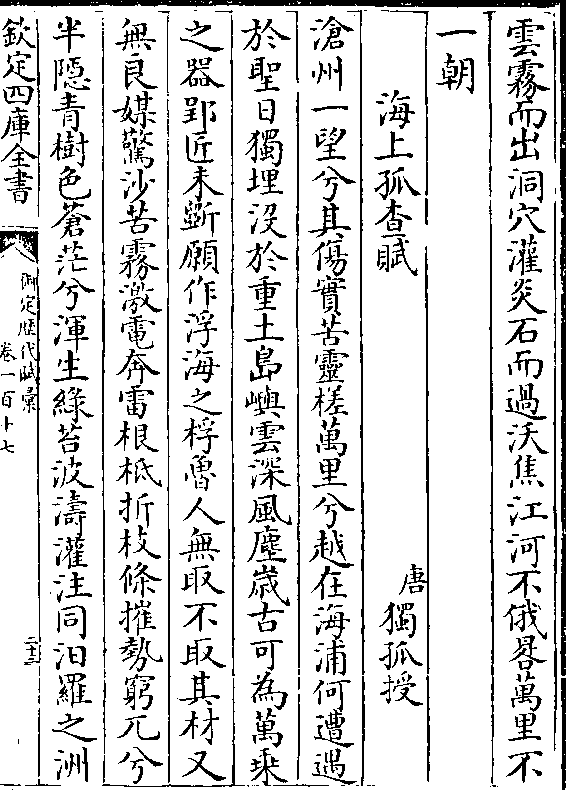 雲霧而出洞穴灌炎石而過沃焦江河不俄晷萬里不
一朝
海上孤查賦
唐獨孤授
滄州一望兮其傷實苦靈槎萬里兮越在海浦何遭遇
於聖日獨埋沒於重土島嶼雲深風塵歲古可為萬乗
之器郢匠未斵願作浮海之桴魯人無取不取其材又
無良媒驚沙苦霧激電奔雷根柢折枝條摧勢窮兀兮
半隠青樹色蒼茫兮渾生綠苔波濤灌注同汨羅之洲
欽定四庫全書
御定歴代賦彙
卷一百十七
二十三